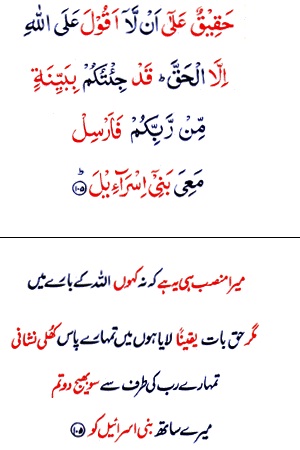 حَقِيْقٌ عَلٰٓى اَنْ لَّاۤ اَقُوْلَ عَلَى اللّٰهِ
اِلَّا الْحَقَّ ؕ قَدْ جِئْتُكُمْ بِبَيِّنَةٍ
مِّنْ رَّبِّكُمْ فَاَرْسِلْ
مَعِىَ بَنِىْۤ اِسْرَآءِيْلَ ؕ ﴿۱۰۵﴾
میرا منصب ہی یہ ہے کہ نہ کہوں اللہ کے بارے میں
مگر حق بات یقیناً لایا ہوں میں تمہارے پاس کھلی نشانی
تمہارے رب کی طرف سے سو بھیج دو تم
میرے ساتھ بنی اسرائیل کو ﴿۱۰۵﴾